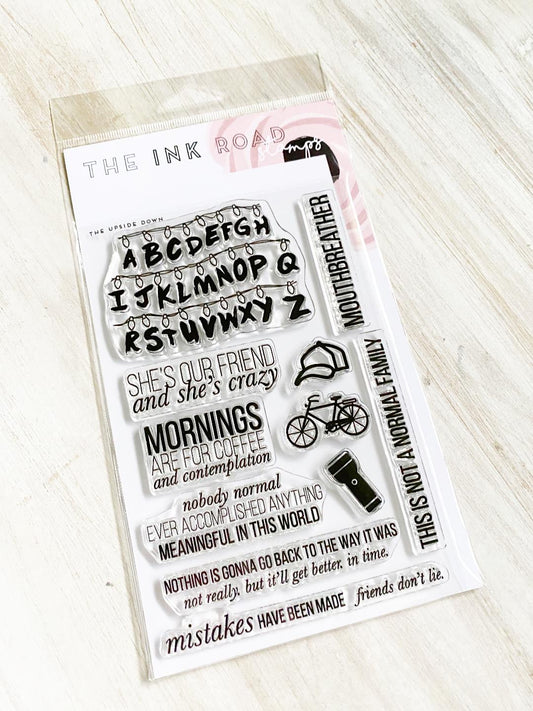 THE INK ROAD
stamps
THE UPSIDE DOWN
ABCDEFGH
IJKLMNOP Q
RSTUVWXY Z
MOUTHBREATHER
SHE'S OUR FRIEND
and she's crazy
MORNINGS
ARE FOR COFFEE
and contemplation
THIS IS NOT A NORMAL FAMILY
nobody normal
EVER ACCOMPLISHED ANYTHING
MEANINGFUL IN THIS WORLD
NOTHING IS GONNA GO BACK TO THE WAY IT WAS
not really, but it'll get better. in time.
mistakes HAVE BEEN MADE
friends don't lie.